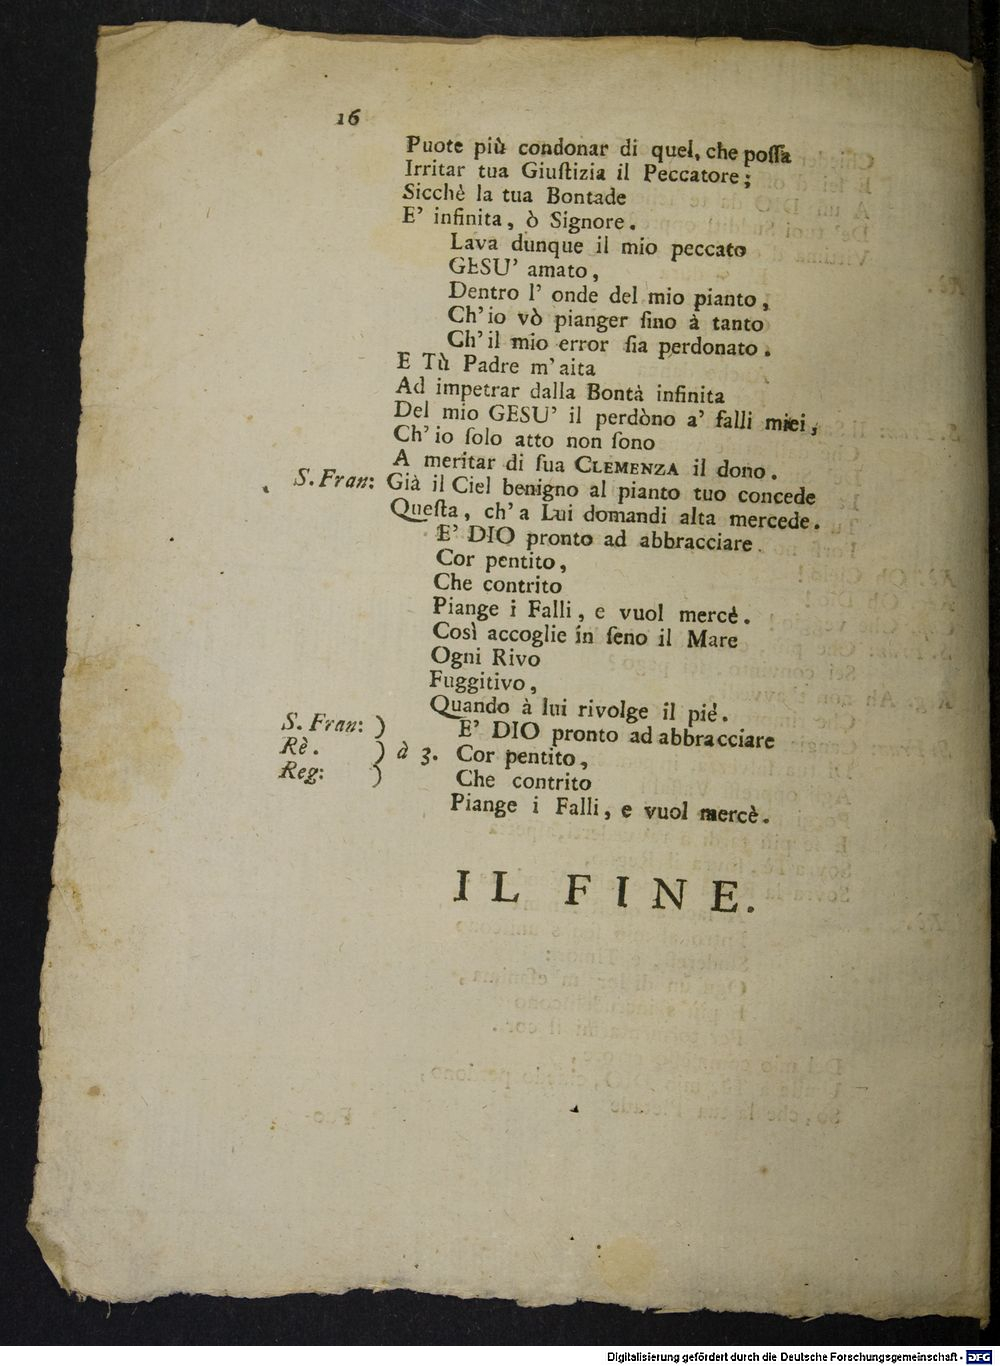 16
Puote più condonar di quel, che poſſa
Irritar tua Giuſtizia il Peccatore;
Sicchè la tua Bontade
E' infinita, ò Signore.
Lava dunque il mio peccato
GESU' amato,
Dentro l' onde del mio pianto,
Ch'io vò pianger ſino à tanto
Ch'il mio error ſia perdonato.
E Tù Padre m'aita
Ad impetrar dalla Bontà infinita
Del mio GESU' il perdòno a' falli miei,
Ch'io ſolo atto non ſono
A meritar di ſua CLEMENZA il dono.
S. Fran: Già il Ciel benigno al pianto tuo concede
Queſta, ch'a Lui domandi alta mercede.
E' DIO pronto ad abbracciare
Cor pentito,
Che contrito
Piange i Falli, e vuol mercé.
Così accoglie in ſeno il Mare
Ogni Rivo
Fuggitivo,
Quando à lui rivolge il pié.
S. Fran: ) E' DIO pronto ad abbracciare
Rè. ) à 3. Cor pentito,
Reg: ) Che contrito
Piange i Falli, e vuol mercè.
IL FINE.
Digitalisierung gefördert durch die Deutsche Forschungsgemeinschaft - DFG